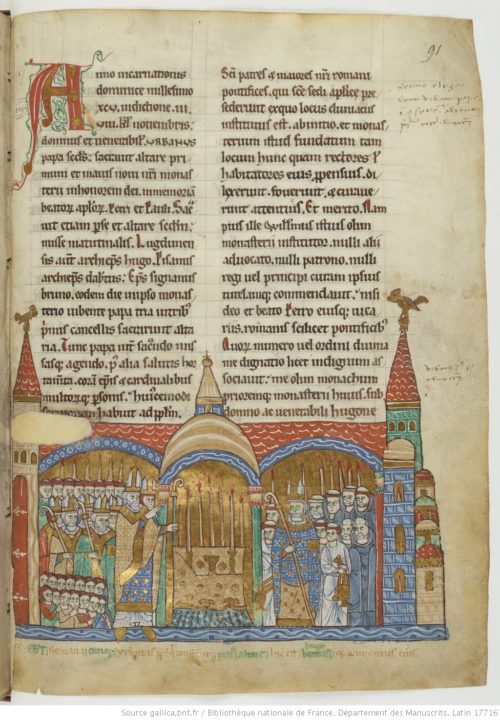 91
Anno incarnationis
dominice millesimo
xcv. indictione. iii.
viii. kl' novembris.
domnus et venerabil' vrbanus
papa scđs: sacravit altare pri
mum et maius novi nri monas
terii in honorem dei. in memoriā
beatoȝ aploȝ. Petri et Pauli. Sac̄
vit etiam pse et altare scđm:
misse matutinalis. Lugdunensis
aut̄ archiep̄s hugo. Pisanus
archiep̄s daibtus. Ep̄s signanus
bruno. eodem die in ipso monas
terio iubente papa tria in tribȝ
primis cancellis sacrarunt alta
ria. Tunc papa int̄ sac̄ndo mis
sasqȝ agendo. p̄ alia salutis hor
tam̄ta. corā ep̄is et cardinalibus
multorqȝ p̄sonis. huiscemodi
habuit ad pplm.
Sc̄i patres et maiores nr̄i romani
pontifices. qui sc̄e sedi aplice pre
sederunt ex quo locus cluniacus
institutus est. ab initio. et monas
terium istud fundatum tam
locum hunc quam rectores et
habitatores eius p̄pensius. di
lexerunt. foverunt. et curave
runt attentius. Et merito. Nam
pius ille Willmus istius olim
monasterii institutor. nulli alii
advocato. nulli patrono. nulli
regi vel principi curam ipsius
tutelamqȝ commendavit. nisi
deo et beato Petro eiusqȝ vica
riis. romanis scilicet pontificibȝ.
Quorȝ numero vel ordini divina
me dignatio licet indignum as
sociavit. me olim monachum
prioremqȝ monasterii huius. sub
domno ac venerabili hugone
Source gallica.bnf.fr / Bibliothèque nationale de France. Département des Manuscrits. Latin 17716